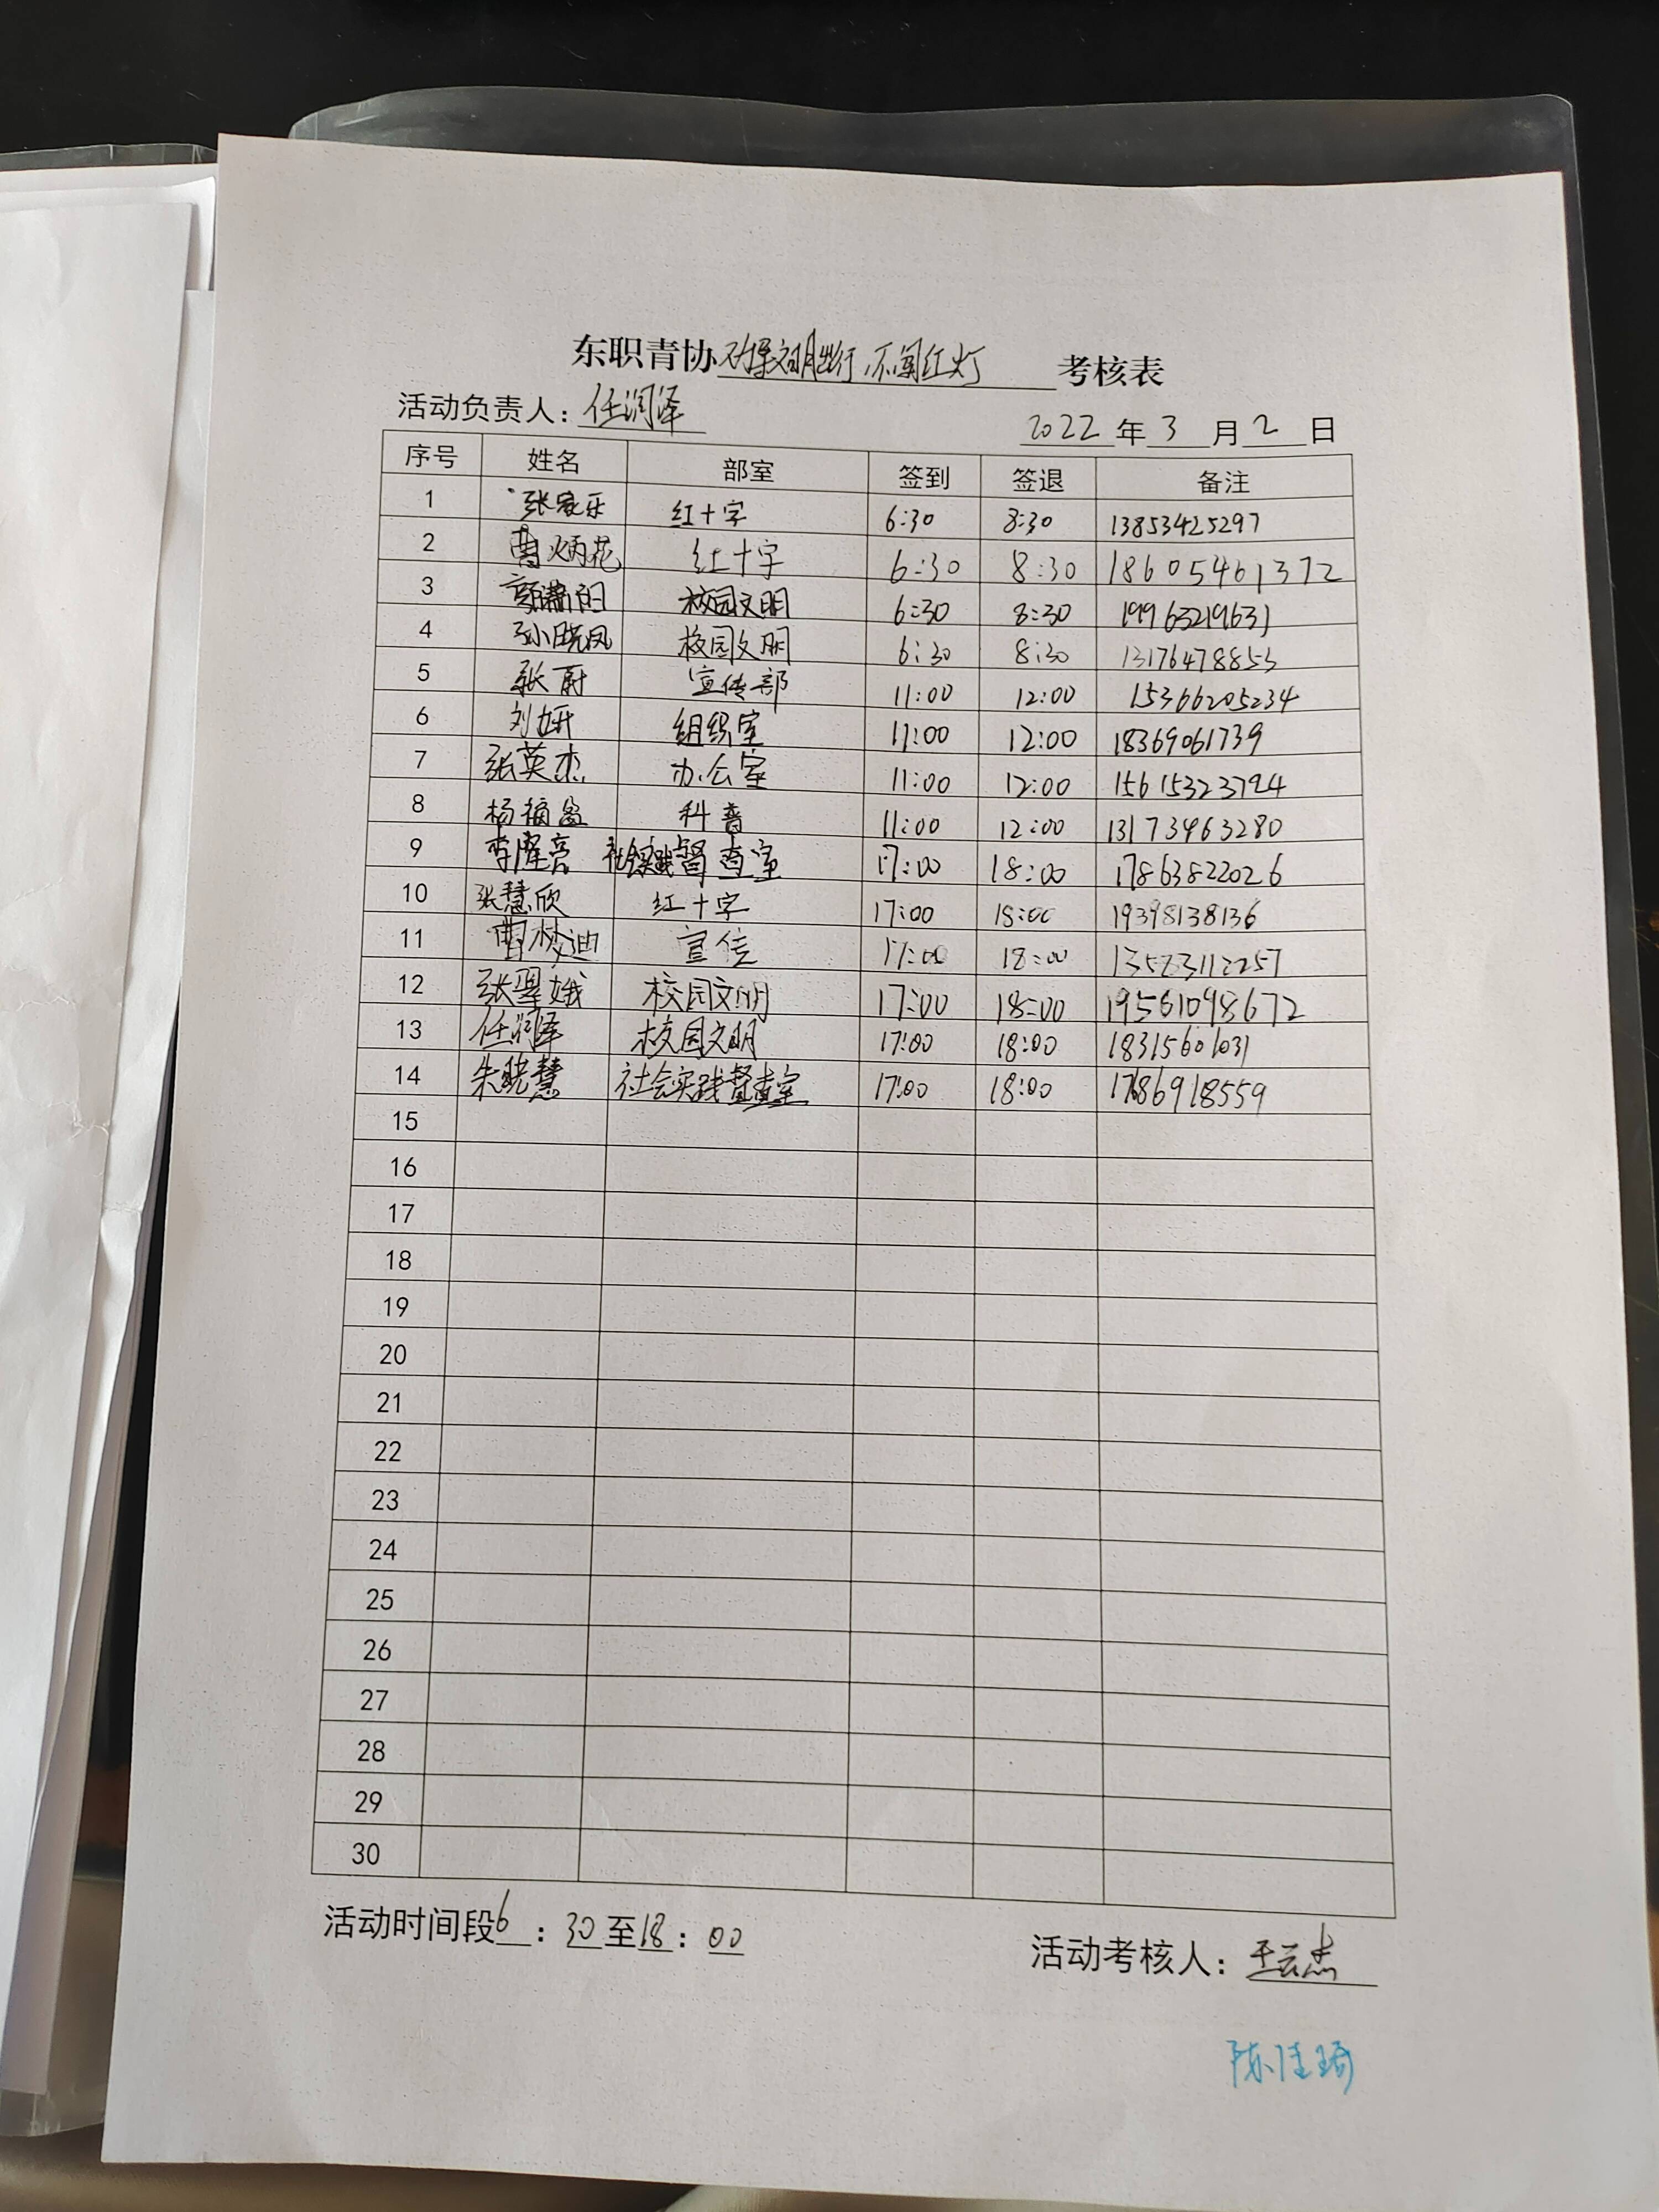 东职青协 文明出行,不闯红灯 考核表
活动负责人: 任润泽
2022 年 3 月 2 日
序号 姓名 部室 签到 签退 备注
1 张家乐 红十字 6:30 8:30 13853425297
2 曹炳花 红十字 6:30 8:30 18605461372
3 校园文明 6:30 8:30 19963219631
4 孙晓凤 校园文明 6:30 8:30 13176478853
5 张蔚 宣传部 11:00 12:00 15366205234
6 刘妍 组织室 11:00 12:00 18369061739
7 张英杰 办公室 11:00 12:00 15615323794
8 杨福盈 科普 11:00 12:00 13173463280
9 李隆亮 社会实践督查室 17:00 18:00 17863822026
10 张慧欣 红十字 17:00 18:00 19398138136
11 曹梦迪 宣传 17:00 18:00
12 张翠娥 校园文明 17:00 18:00 19561098672
13 任润泽 校园文明 17:00 18:00 18315601031
14 朱晓慧 社会实践督查室 17:00 18:00 17686918559
15
16
17
18
19
20
21
22
23
24
25
26
27
28
29
30
活动时间段6:30至18:00
活动考核人: 王云杰
陈佳琦